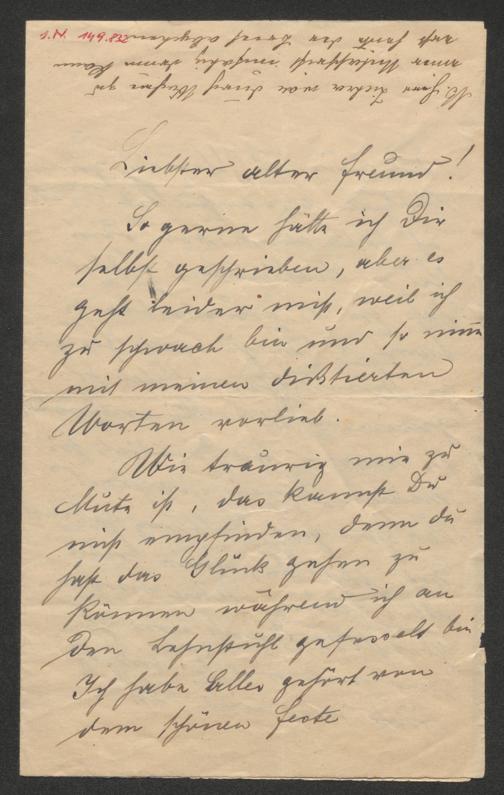 I.N. 149.832
Liebster alter Freund!
So gerne hätte ich Dir
selbst geschrieben, aber es
geht leider nicht, weil ich
zu schwach bin und so nimm
mit meinen diktierten
Worten vorlieb.
Wie traurig mir zu
Mute ist, das kannst Du
nicht empfinden, denn du
hast das Glück gehen zu
können während ich an
den Lehnstuhl gefesselt bin
Ich habe Alles gehört von
dem schönen Feste